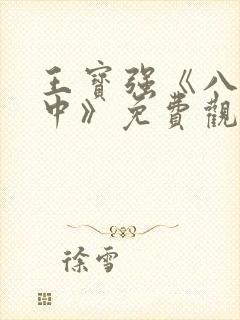 王寶强《八
中》免費觀
徐雪